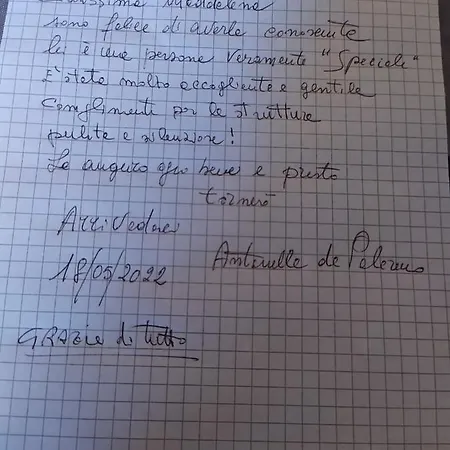 Maddalena
sono felice di averla conosciuta
lei è una persona veramente "Speciale"
E' stata molto accogliente e gentile
Complimenti per la struttura
pulita e silenziosa!
Le auguro ogni bene e presto
tornerò
Arrivederci
18/05/2022 Antonella da Palermo
GRAZIE di tutto